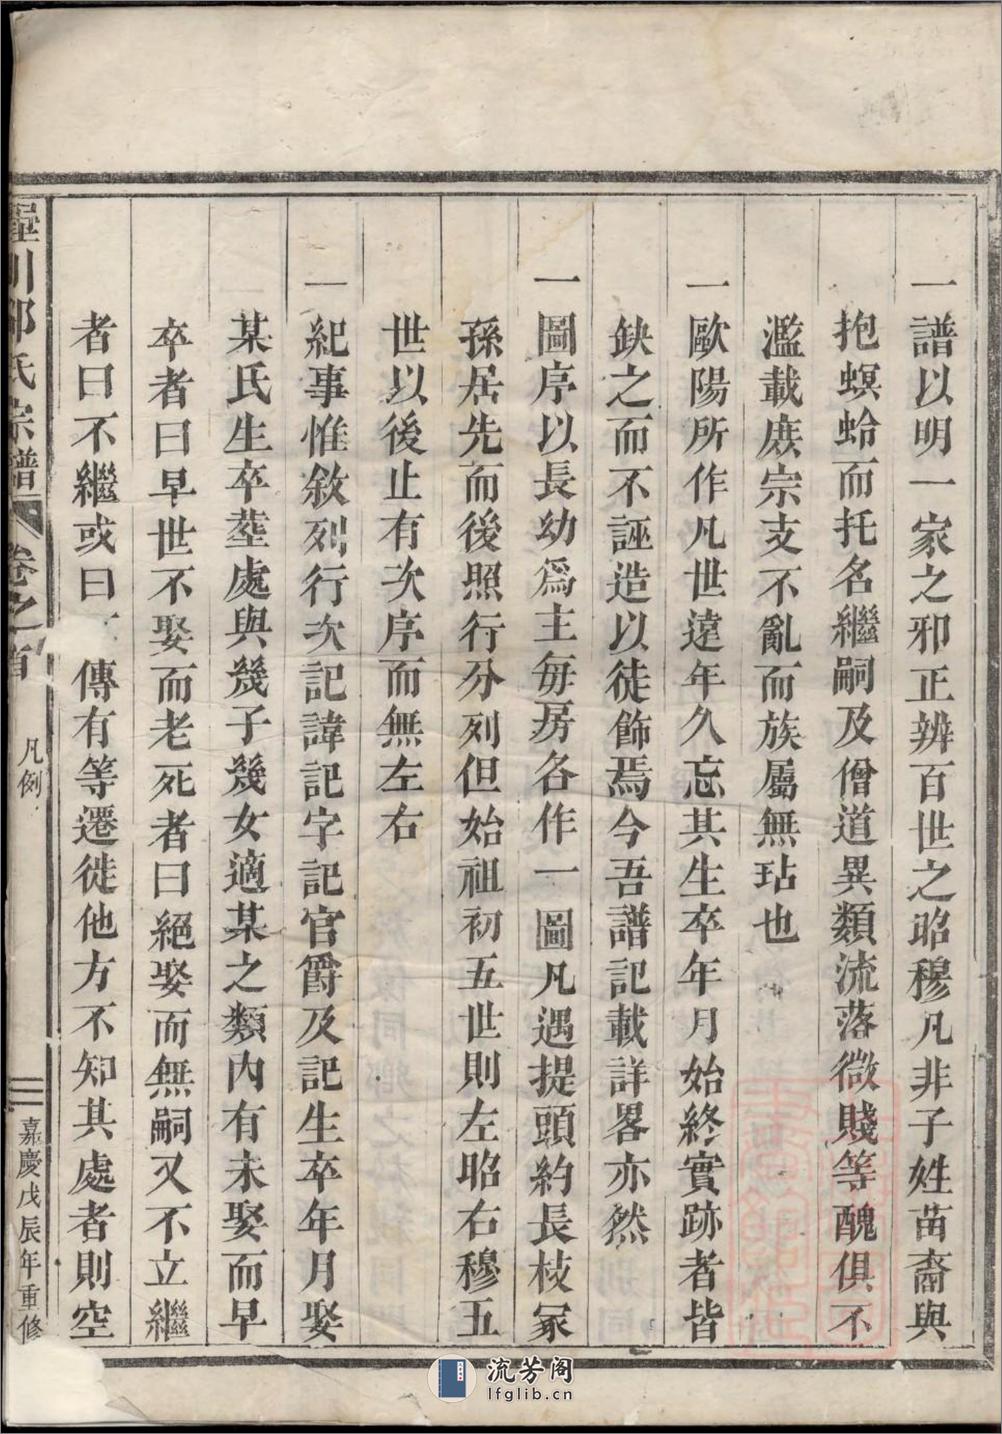 一譜以明一家之邪正辨百世之昭穆凡非子姓苗裔與
抱螟蛉而托名繼嗣及僧道異類流落微賤等醜俱不
濫載庶宗支不亂而族屬無玷也
一歐陽所作凡世遠年久忘其生卒年月始終實跡者皆
缺之而不誣造以徒飾焉今吾譜記載詳畧亦然
一圖序以長幼爲主每房各作一圖凡遇提頭約長枝冢
孫居先而後照行分列但始祖初五世則左昭右穆五
世以後止有次序而無左右
一紀事惟敘列行次記諱記字記官爵及記生卒年月娶
某氏生卒塟處與幾子幾女適某之類內有未娶而早
卒者曰早世不娶而老死者曰絕娶而無嗣又不立繼
者曰不繼或曰傳有等遷徙他方不知其處者則空
川邵氏宗譜 卷之首 凡例 嘉慶戊辰年重修
流芳阁
lfglib.cn